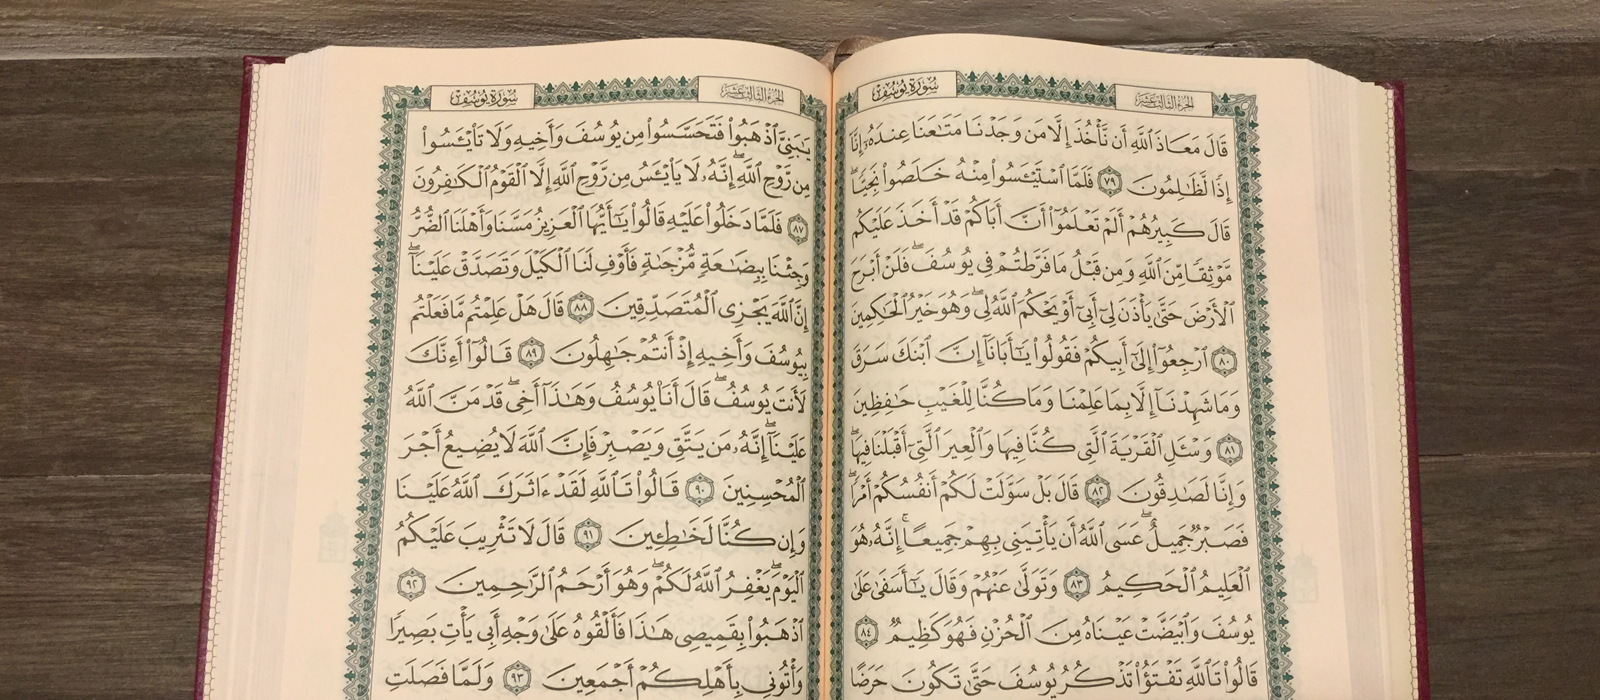 سُورَةُ يُوسُفَ
الجزء الثالث عشر
قَالَ مَعَاذَ ٱللَّهِ أَن نَّأْخُذَ إِلَّا مَن وَجَدْنَا مَتَـٰعَنَا عِندَهُۥٓ إِنَّآ
إِذًا لَّظَـٰلِمُونَ ٧٩ فَلَمَّا ٱسْتَيْـَٔسُوا۟ مِنْهُ خَلَصُوا۟ نَجِيًّا ۖ
قَالَ كَبِيرُهُمْ أَلَمْ تَعْلَمُوٓا۟ أَنَّ أَبَاكُمْ قَدْ أَخَذَ عَلَيْكُم
مَّوْثِقًا مِّنَ ٱللَّهِ وَمِن قَبْلُ مَا فَرَّطتُمْ فِى يُوسُفَ ۖ فَلَنْ أَبْرَحَ
ٱلْأَرْضَ حَتَّىٰ يَأْذَنَ لِىٓ أَبِىٓ أَوْ يَحْكُمَ ٱللَّهُ لِى ۖ وَهُوَ خَيْرُ ٱلْحَـٰكِمِينَ
٨٠ ٱرْجِعُوٓا۟ إِلَىٰٓ أَبِيكُمْ فَقُولُوا۟ يَـٰٓأَبَانَآ إِنَّ ٱبْنَكَ سَرَقَ
وَمَا شَهِدْنَآ إِلَّا بِمَا عَلِمْنَا وَمَا كُنَّا لِلْغَيْبِ حَـٰفِظِينَ
٨١ وَسْـَٔلِ ٱلْقَرْيَةَ ٱلَّتِى كُنَّا فِيهَا وَٱلْعِيرَ ٱلَّتِىٓ أَقْبَلْنَا فِيهَا ۖ
وَإِنَّا لَصَـٰدِقُونَ ٨٢ قَالَ بَلْ سَوَّلَتْ لَكُمْ أَنفُسُكُمْ أَمْرًا ۖ
فَصَبْرٌ جَمِيلٌ ۖ عَسَى ٱللَّهُ أَن يَأْتِيَنِى بِهِمْ جَمِيعًا ۚ إِنَّهُۥ هُوَ
ٱلْعَلِيمُ ٱلْحَكِيمُ ٨٣ وَتَوَلَّىٰ عَنْهُمْ وَقَالَ يَـٰٓأَسَفَىٰ عَلَىٰ
يُوسُفَ وَٱبْيَضَّتْ عَيْنَاهُ مِنَ ٱلْحُزْنِ فَهُوَ كَظِيمٌ ٨٤
قَالُوا۟ تَٱللَّهِ تَفْتَؤُا۟ تَذْكُرُ يُوسُفَ حَتَّىٰ تَكُونَ حَرَضًا
سُورَةُ يُوسُفَ
الجزء الثالث عشر
يَـٰبَنِىَّ ٱذْهَبُوا۟ فَتَحَسَّسُوا۟ مِن يُوسُفَ وَأَخِيهِ وَلَا تَا۟يْـَٔسُوا۟
مِن رَّوْحِ ٱللَّهِ ۖ إِنَّهُۥ لَا يَا۟يْـَٔسُ مِن رَّوْحِ ٱللَّهِ إِلَّا ٱلْقَوْمُ ٱلْكَـٰفِرُونَ
٨٧ فَلَمَّا دَخَلُوا۟ عَلَيْهِ قَالُوا۟ يَـٰٓأَيُّهَا ٱلْعَزِيزُ مَسَّنَا وَأَهْلَنَا ٱلضُّرُّ
وَجِئْنَا بِبِضَـٰعَةٍ مُّزْجَىٰةٍ فَأَوْفِ لَنَا ٱلْكَيْلَ وَتَصَدَّقْ عَلَيْنَآ ۖ
إِنَّ ٱللَّهَ يَجْزِى ٱلْمُتَصَدِّقِينَ ٨٨ قَالَ هَلْ عَلِمْتُم مَّا فَعَلْتُم
بِيُوسُفَ وَأَخِيهِ إِذْ أَنتُمْ جَـٰهِلُونَ ٨٩ قَالُوٓا۟ أَءِنَّكَ
لَأَنتَ يُوسُفُ ۖ قَالَ أَنَا۠ يُوسُفُ وَهَـٰذَآ أَخِى ۖ قَدْ مَنَّ ٱللَّهُ
عَلَيْنَآ ۖ إِنَّهُۥ مَن يَتَّقِ وَيَصْبِرْ فَإِنَّ ٱللَّهَ لَا يُضِيعُ أَجْرَ
ٱلْمُحْسِنِينَ ٩٠ قَالُوا۟ تَٱللَّهِ لَقَدْ ءَاثَرَكَ ٱللَّهُ عَلَيْنَا
وَإِن كُنَّا لَخَـٰطِـِٔينَ ٩١ قَالَ لَا تَثْرِيبَ عَلَيْكُمُ
ٱلْيَوْمَ ۖ يَغْفِرُ ٱللَّهُ لَكُمْ ۖ وَهُوَ أَرْحَمُ ٱلرَّٰحِمِينَ ٩٢
ٱذْهَبُوا۟ بِقَمِيصِى هَـٰذَا فَأَلْقُوهُ عَلَىٰ وَجْهِ أَبِى يَأْتِ بَصِيرًا
وَأْتُونِى بِأَهْلِكُمْ أَجْمَعِينَ ٩٣ وَلَمَّا فَصَلَتِ